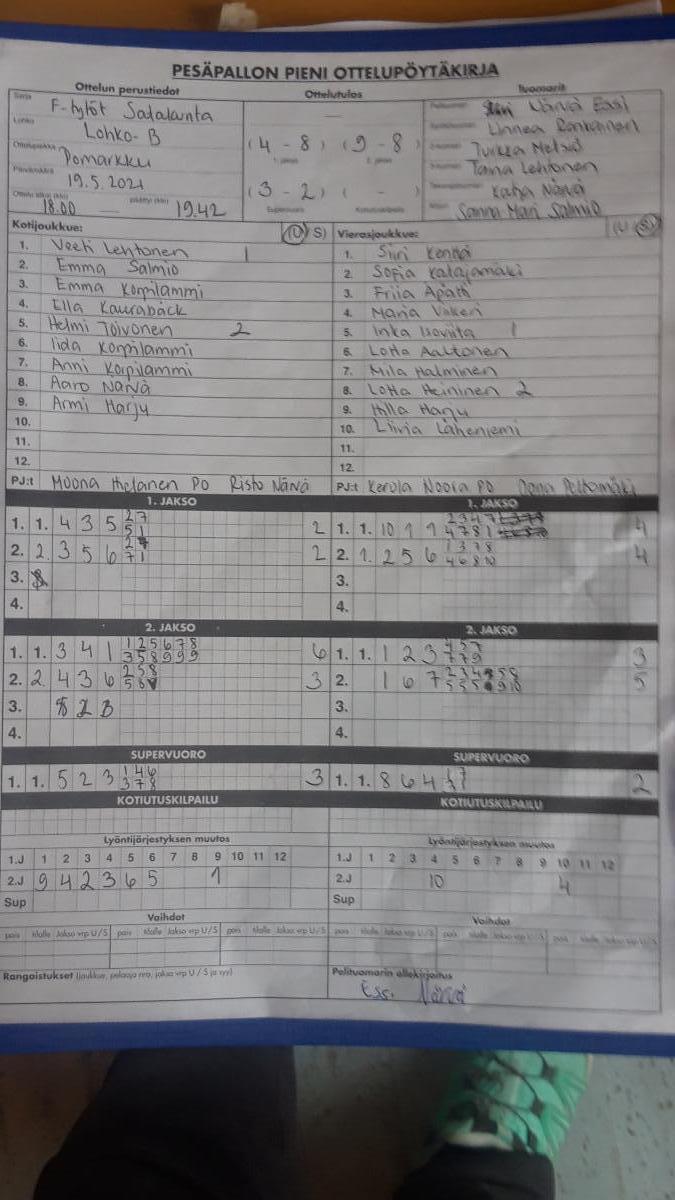 PESÄPALLON PIENI OTTELUPÖYTÄKIRJA
Ottelun perustiedot Ottelutulos Tuomarit
Sarja F-tytöt Satakunta
Lohko Lohko-B
Ottelupaikka Pomarkku
Päivämäärä 19.5.2021
18.00 19.42
(4 - 8) (9 - 8)
1. jakso 2. jakso
(3 - 2) ( - )
Supervuoro Kotiutuskilpailu
Närvä Essi
Linnea
Turkka
Taina Lehtonen
Katja Närvä
Sanna Mari Salmio
Kotijoukkue: (U/S)
1. Veeti Lehtonen 1
2. Emma Salmio
3. Emma Korpilammi
4. Ella Kauraback
5. Helmi Toivonen 2
6. Iida Korpilammi
7. Anni Korpilammi
8. Aaro Närvä
9. Armi Harju
10.
11.
12.
PJ:t Moona PO Risto Närvä
Vierasjoukkue: (U/S)
1. Siiri
2. Sofia Katajamäki
3. Friia
4. Maria
5. Inka Isoviita 1
6. Lotta Aaltonen
7. Mila Halminen
8. Lotta Heininen 2
9. Hilla Harju
10. Liivia Laheniemi
11.
12.
PJ:t Kerola Noora PO Oona Peltomäki
1. JAKSO
1. 1. 4 3 5 27 51 2
2. 2. 3 5 6 71 2
3.
4.
1. JAKSO
1. 1. 10 1 9 2347 4781 4
2. 1. 2 5 6 1378 46810 4
3.
4.
2. JAKSO
1. 1. 3 4 1 125678 358999 6
2. 2 4 3 6 258 3
3.
4.
2. JAKSO
1. 1. 1 2 3 3
2. 1 6 7 5
3.
4.
SUPERVUORO
1. 1. 5 2 3 146 378 3
SUPERVUORO
1. 1. 8 6 4 2
KOTIUTUSKILPAILU
KOTIUTUSKILPAILU
Lyöntijärjestyksen muutos
1.J 1 2 3 4 5 6 7 8 9 10 11 12
2.J 9 4 2 3 6 5 1
Sup
Lyöntijärjestyksen muutos
1.J 1 2 3 4 5 6 7 8 9 10 11 12
2.J 10 4
Sup
Vaihdot
pois tilalle Jakso vrp U/S pois tilalle Jakso vrp U/S pois tilalle Jakso vrp U/S
Vaihdot
pois tilalle Jakso vrp U/S pois tilalle Jakso vrp U/S pois tilalle Jakso vrp U/S
Rangaistukset (joukkue, pelaaja nro, jakso vrp U / S ja syy)
Pelituomarin allekirjoitus
Essi Närvä